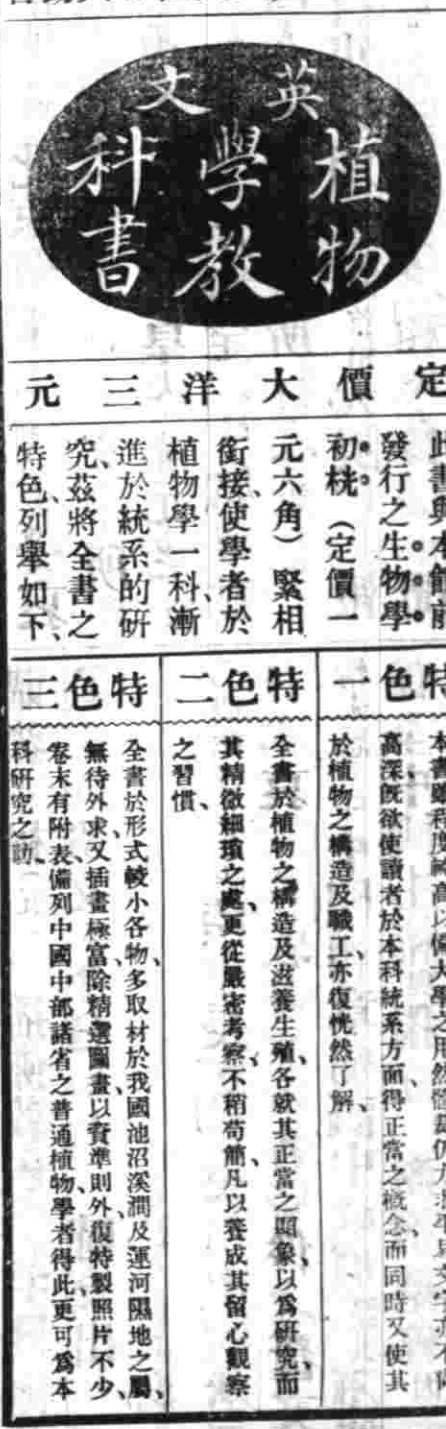 英文
植物
學教
科書
定價大洋三元
此書與本館前
發行之生物學
初桄（定價一
元六角）緊相
銜接、使學者於
植物學一科、漸
進於統系的研
究、茲將全書之
特色、列舉如下、
特色一
高深、既欲使讀者於本科統系方面、得正當之概念、而同時又使其
於植物之構造及職工、亦復恍然了解、
特色二
全書於植物之構造及滋養生殖、各就其正當之現象、以爲研究、而
其精微細瑣之處、更從嚴密考察、不稍苟簡、凡以養成其留心觀察
之習慣、
特色三
全書於形式較小各物、多取材於我國池沼溪澗及運河隰地之屬、
無待外求、又插畫極富、除精選圖畫以資準則外、復特製照片不少、
卷末有附表、備列中國中部諸省之普通植物、學者得此、更可爲本
科研究之助、